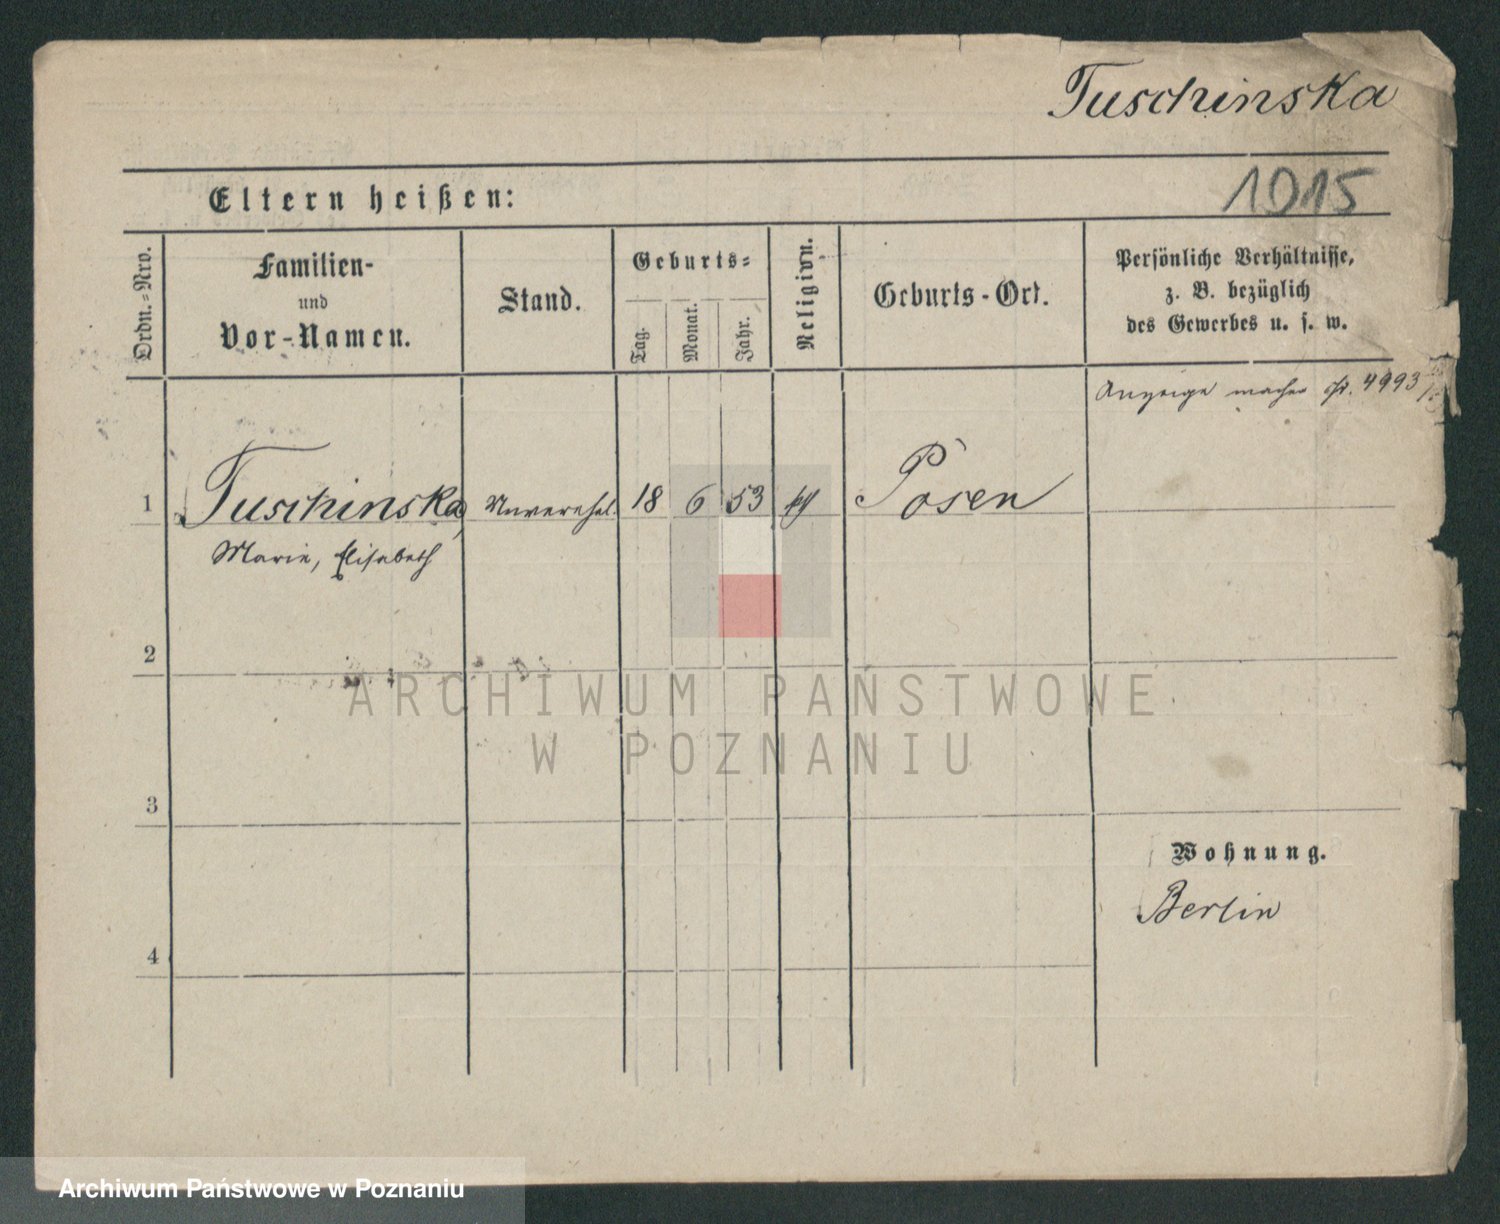 Tuschinska
1015
Eltern heißen:
Ordn.-Nro.
Familien-
und
Vor-Namen.
Stand.
Geburts-
Tag.
Monat.
Jahr.
Religion.
Geburts-Ort.
Persönliche Verhältnisse,
z. B. bezüglich
des Gewerbes u. s. w.
Anzeige machen 4993
1 Tuschinska, Unverehel. 18 6 53 Posen
Marie, Elisabeth
2
ARCHIWUM PAŃSTWOWE
W POZNANIU
3
Wohnung.
Berlin
4
Archiwum Państwowe w Poznaniu